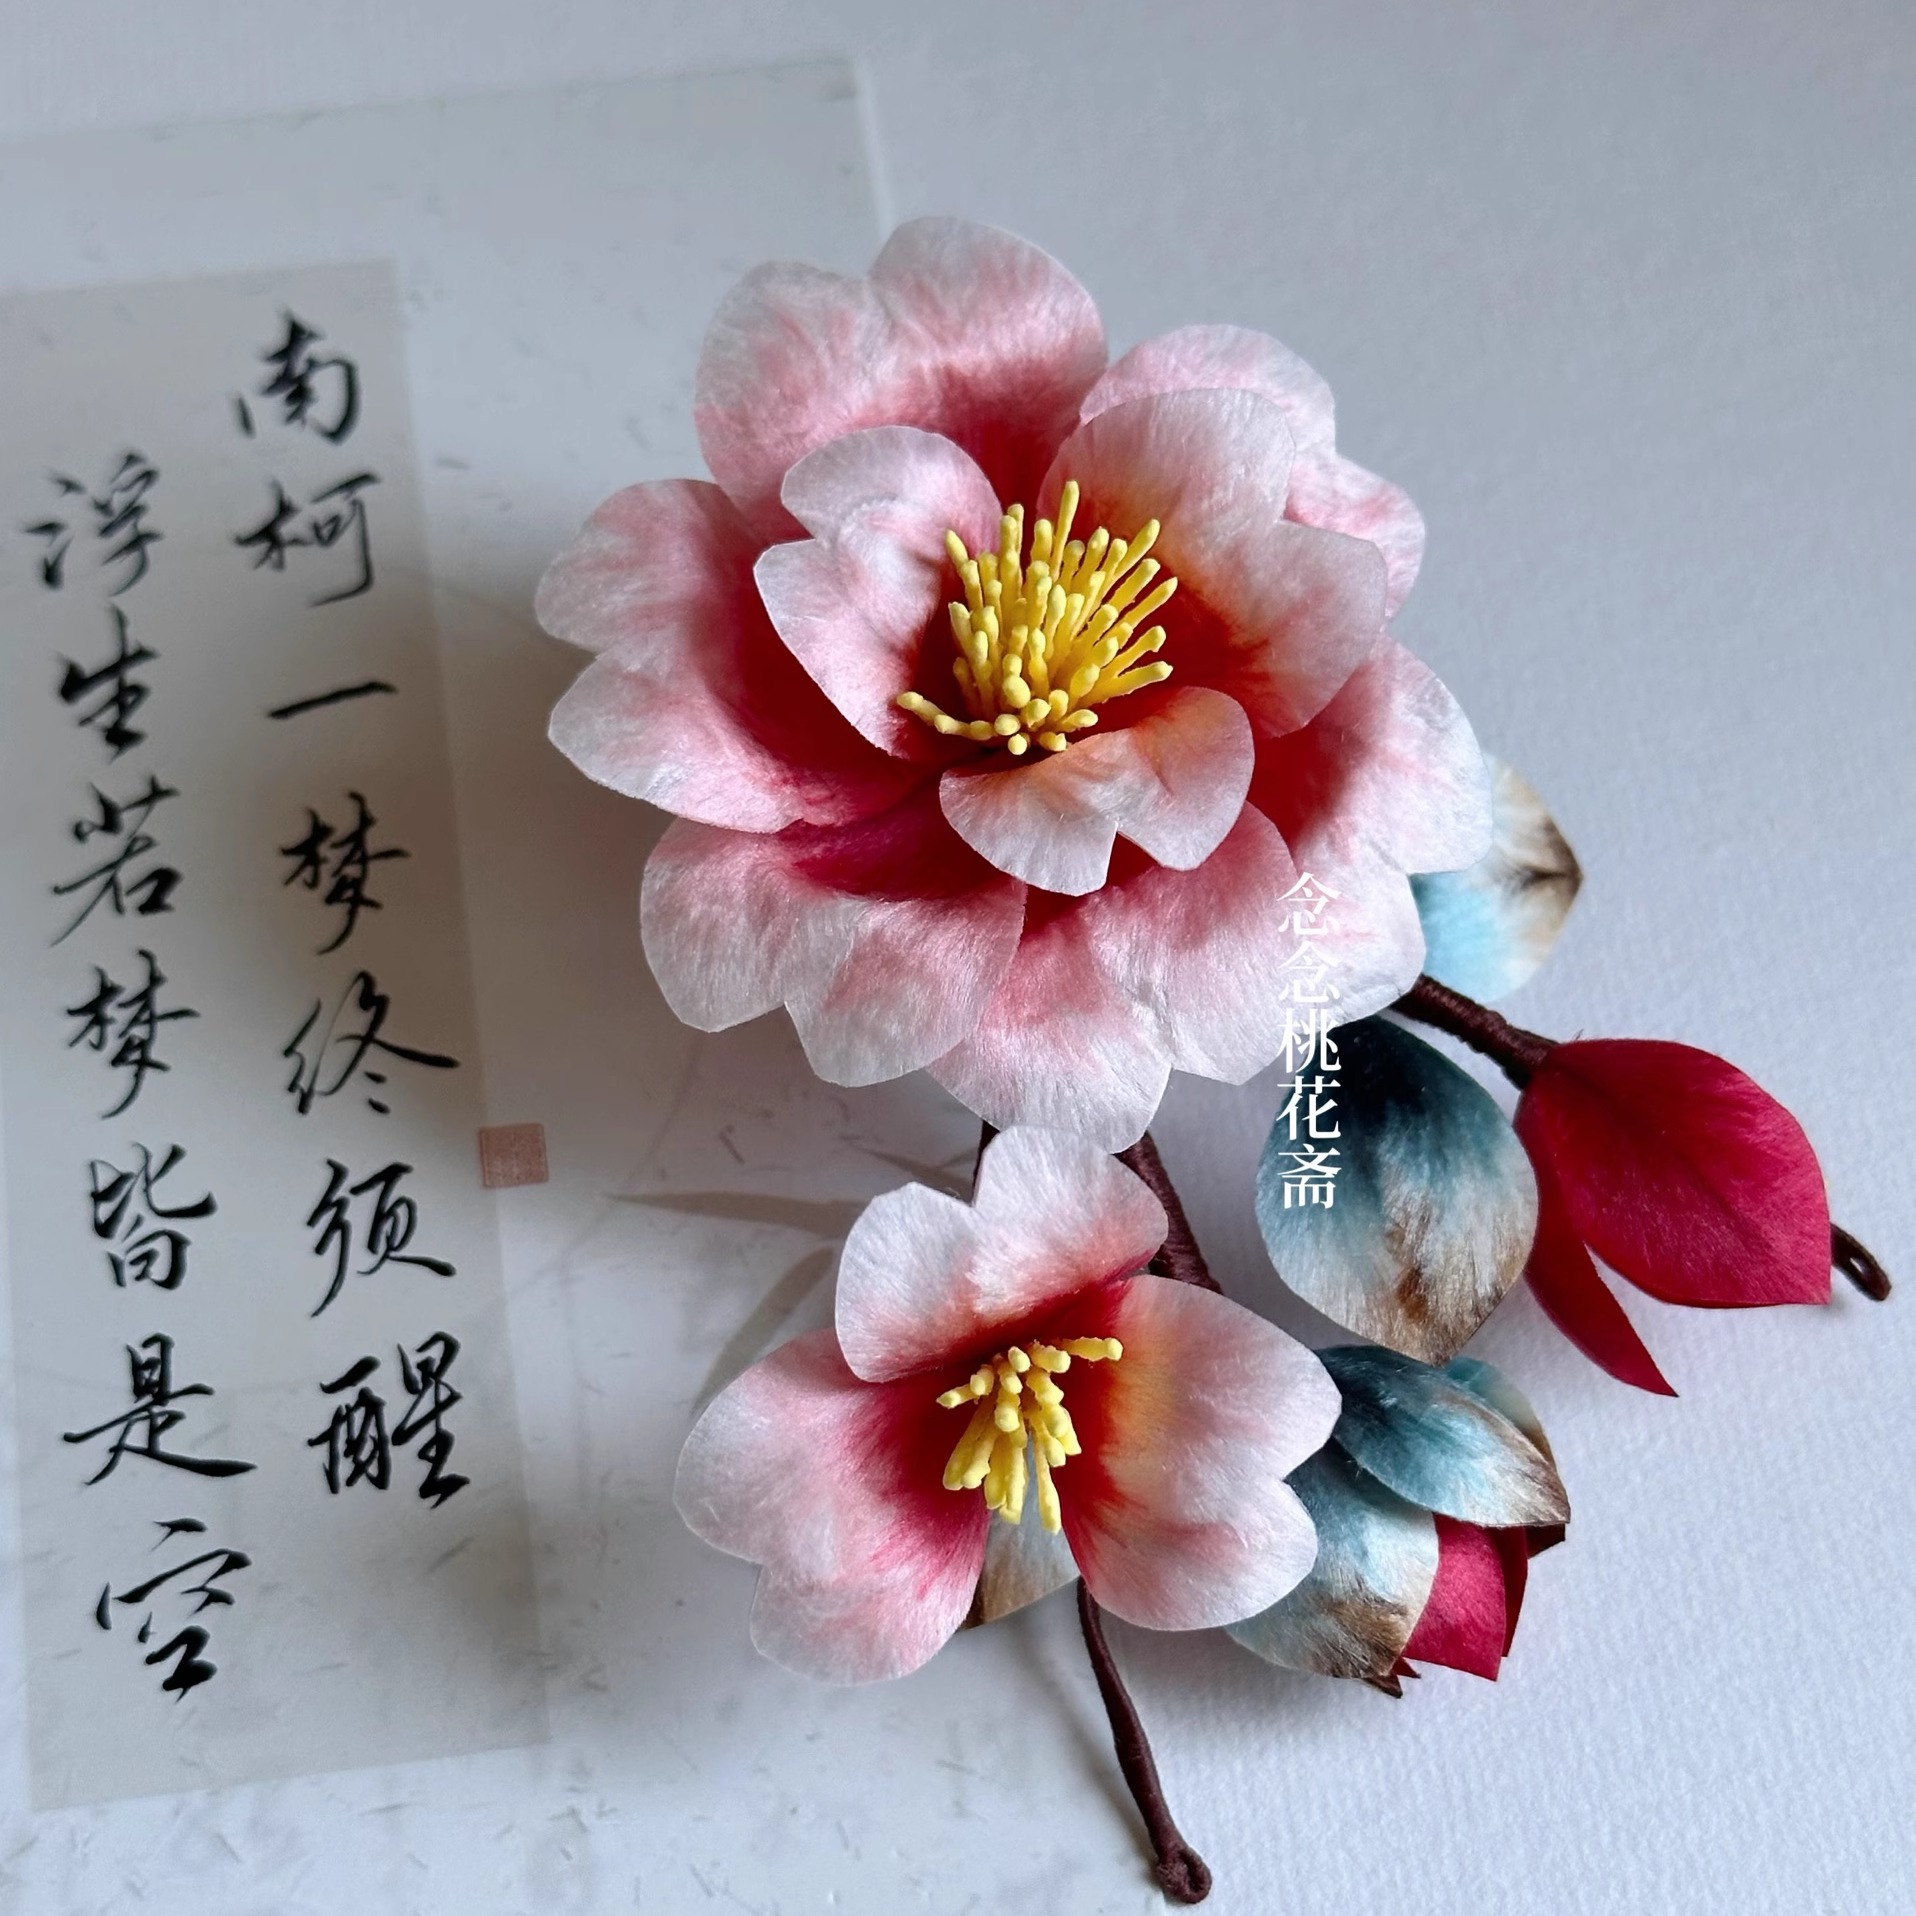 南柯一梦终须醒
浮生若梦皆是空
念念桃花斋